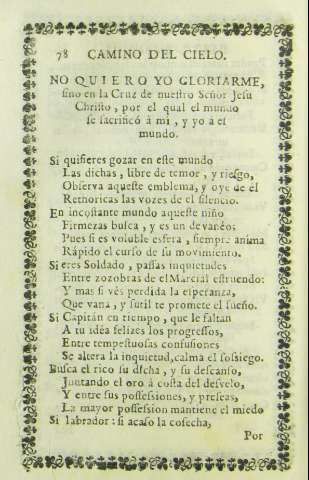 78 CAMINO DEL CIELO.
NO QUIERO YO GLORIARME,
sino en la Cruz de nuestro Señor Jesu
Christo, por el qual el mundo
se sacrificó á mi, y yo á el
mundo.
Si quisieres gozar en este mundo
Las dichas, libre de temor, y riesgo,
Observa aqueste emblema, y oye de él
Rethoricas las vozes de el silencio.
En inconstante mundo aqueste niño
Firmezas busca, y es un devanèo;
Pues si es voluble esfera, siempre anima
Rápido el curso de su movimiento.
Si eres Soldado, passas inquietudes
Entre zozobras de el Marcial estruendo:
Y mas si vés perdida la esperanza,
Que vana, y sutil te promete el sueño.
Si Capitán en tiempo, que le faltan
A tu idéa felizes los progressos,
Entre tempestuosas confusiones
Se altera la inquietud, calma el sossiego.
Busca el rico su dicha, y su descanso,
Juntando el oro á costa del desvelo,
Y entre sus possessiones, y preseas,
La mayor possession mantiene el miedo
Si labrador: si acaso la cosecha,
Por